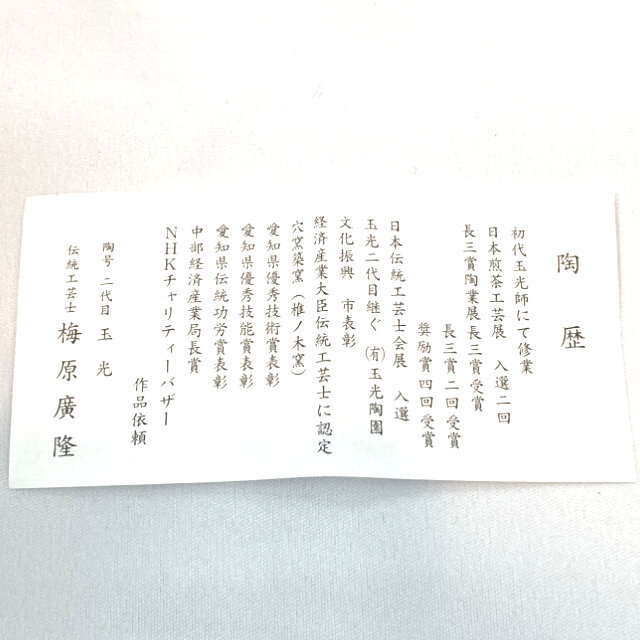 陶歴
初代玉光師にて修業
日本煎茶工芸展 入選二回
長三賞陶業展長三賞受賞
長三賞二回受賞
奨励賞四回受賞
日本伝統工芸士会展 入選
玉光二代目継ぐ (有)玉光陶園
文化振興 市表彰
経済産業大臣伝統工芸士に認定
穴窯築窯(椎ノ木窯)
愛知県優秀技術賞表彰
愛知県優秀技能賞表彰
愛知県伝統功労賞表彰
中部経済産業局長賞
NHKチャリティーバザー
作品依頼
陶号 二代目 玉光
伝統工芸士 梅原廣隆